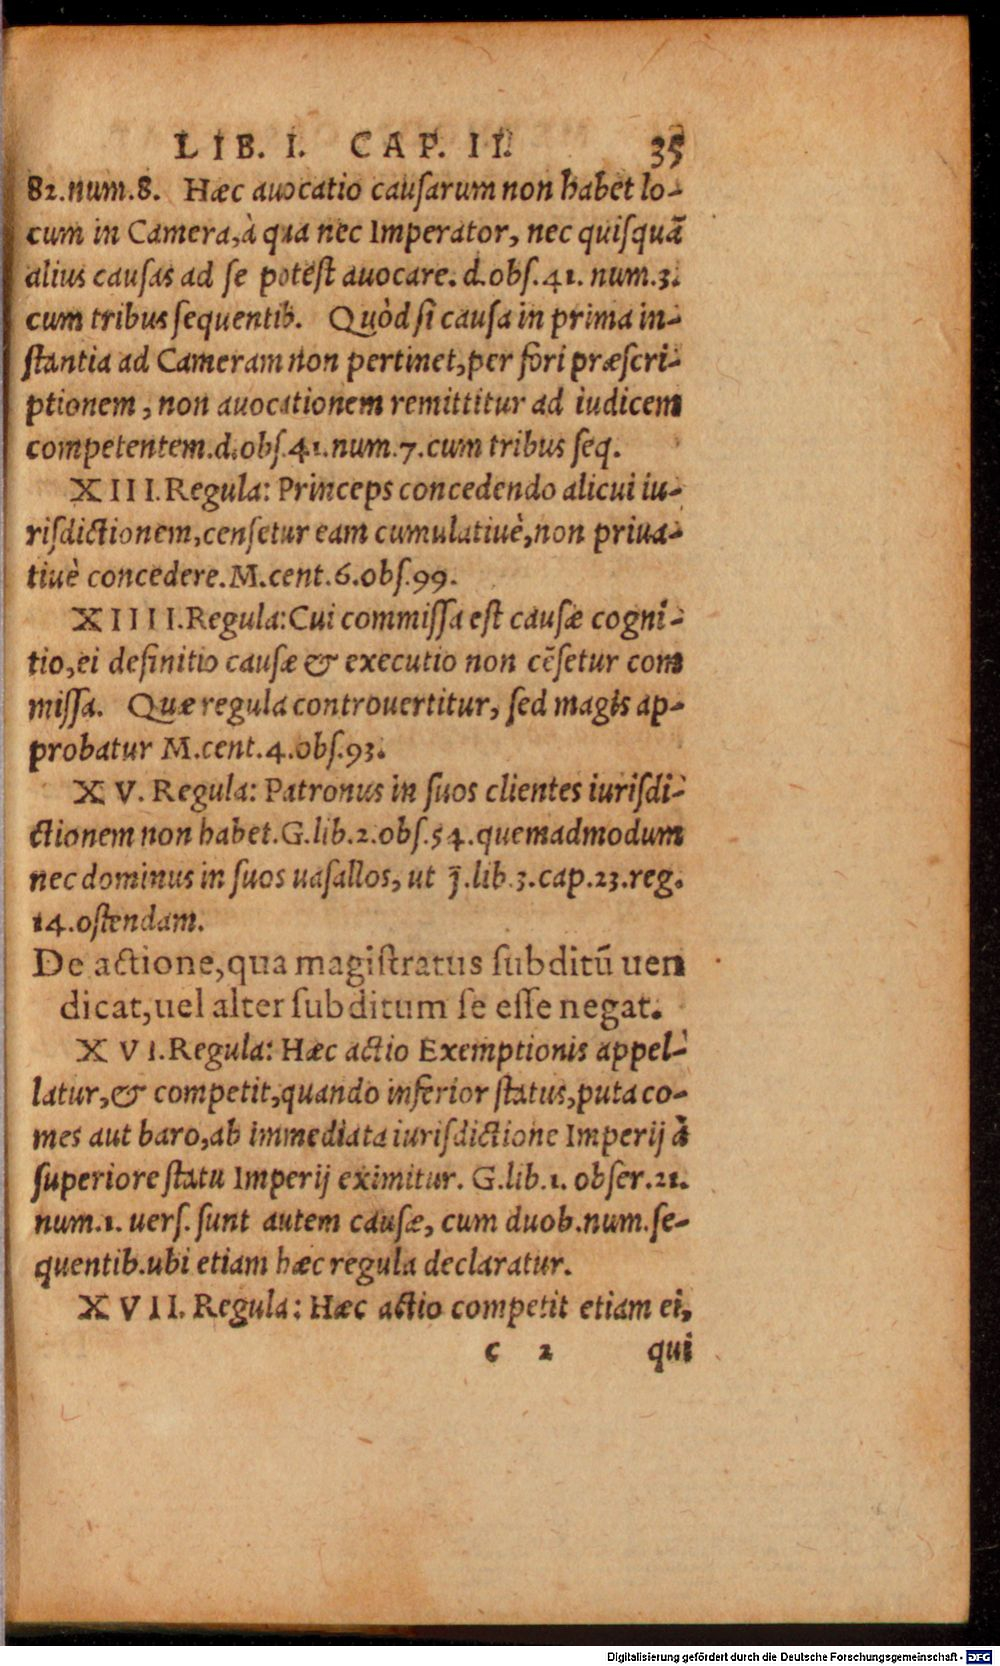 LIB. I. CAP. II. 35
82.num.8. Hæc auocatio causarum non habet lo-
cum in Camera,à qua nec Imperator, nec quisquã
alius causas ad se potest auocare. d.obs.41. num.3.
cum tribus sequentib. Quòd si causa in prima in-
stantia ad Cameram non pertinet,per fori præscri-
ptionem, non auocationem remittitur ad iudicem
competentem.d.obs.41.num.7.cum tribus seq.
XIII.Regula: Princeps concedendo alicui iu-
risdictionem,censetur eam cumulatiuè,non priua-
tiuè concedere.M.cent.6.obs.99.
XIIII.Regula:Cui commissa est causæ cogni-
tio,ei definitio causæ & executio non cẽsetur com
missa. Quæ regula controuertitur, sed magis ap-
probatur M.cent.4.obs.93.
XV. Regula: Patronus in suos clientes iurisdi-
ctionem non habet.G.lib.2.obs.54.quemadmodum
nec dominus in suos uasallos, ut j̃.lib.3.cap.23.reg.
14.ostendam.
De actione,qua magistratus subditũ uen
dicat,uel alter subditum se esse negat.
XVI.Regula: Hæc actio Exemptionis appel-
latur,& competit,quando inferior status,puta co-
mes aut baro,ab immediata iurisdictione Imperij à
superiore statu Imperij eximitur. G.lib.1. obser.21.
num.1. uers. sunt autem causæ, cum duob.num.se-
quentib.ubi etiam hæc regula declaratur.
XVII. Regula: Hæc actio competit etiam ei,
c 2 qui
Digitalisierung gefördert durch die Deutsche Forschungsgemeinschaft - DFG